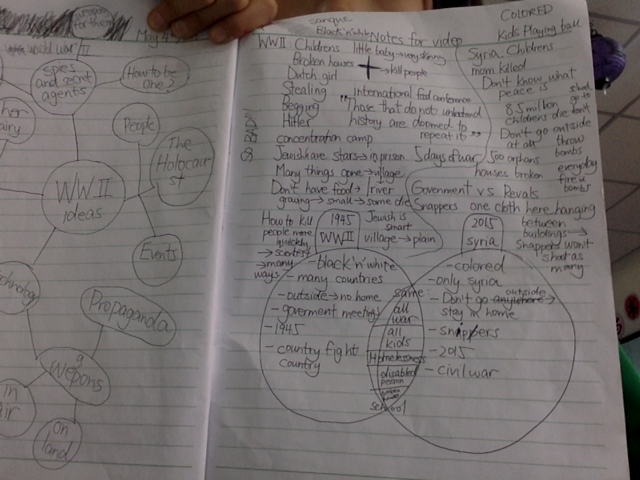 propaganda
for them
May 4
world war II
spies
and secret
agents
How to be
one?
her
airy
People
The
Holocau
st
WWII
ideas
Events
Technology
Propaganda
Wepons
in
air
on
land
sangue
Black'n'white
Notes for video
WWII Childrens
little baby → very skinny
Broken houses
→ kill people
Dutch girl
Stealing
international fed conference
Begging
"Those that do not understand
Hitler
history are doomed to
repeat it"
SO BAD
concentration camp
Jewish were stars → in prison
5 days of war
Many things gone → village
Don't have food → river
graying → small → some die
How to kill
people more
quickly
→ scientist
→ many
ways
1945
WWII
Jewish is
smart
village → plain
- black'n'white
- many countries
- outside → no home
- goverment meeting
- 1945
- country fight
country
same
all
war
all
kids
Homelessness
disabled
person
school
COLORED
Kids Playing ball
Syria Childrens
mom killed
Don't know what
peace is
8.5 million
children die
Don't go outside
at all
500 orphans
houses broken
should
go to
don't
throw
bombs
everyday
fire n
bombs
Government vs Revals
Snappers one cloth here hanging
between
buildings →
snappers won't
shoot as
many
2015
syria
- colored
- only syria
- Don't go anywhere outside →
stay in home
- snappers
- 2015
- civil war